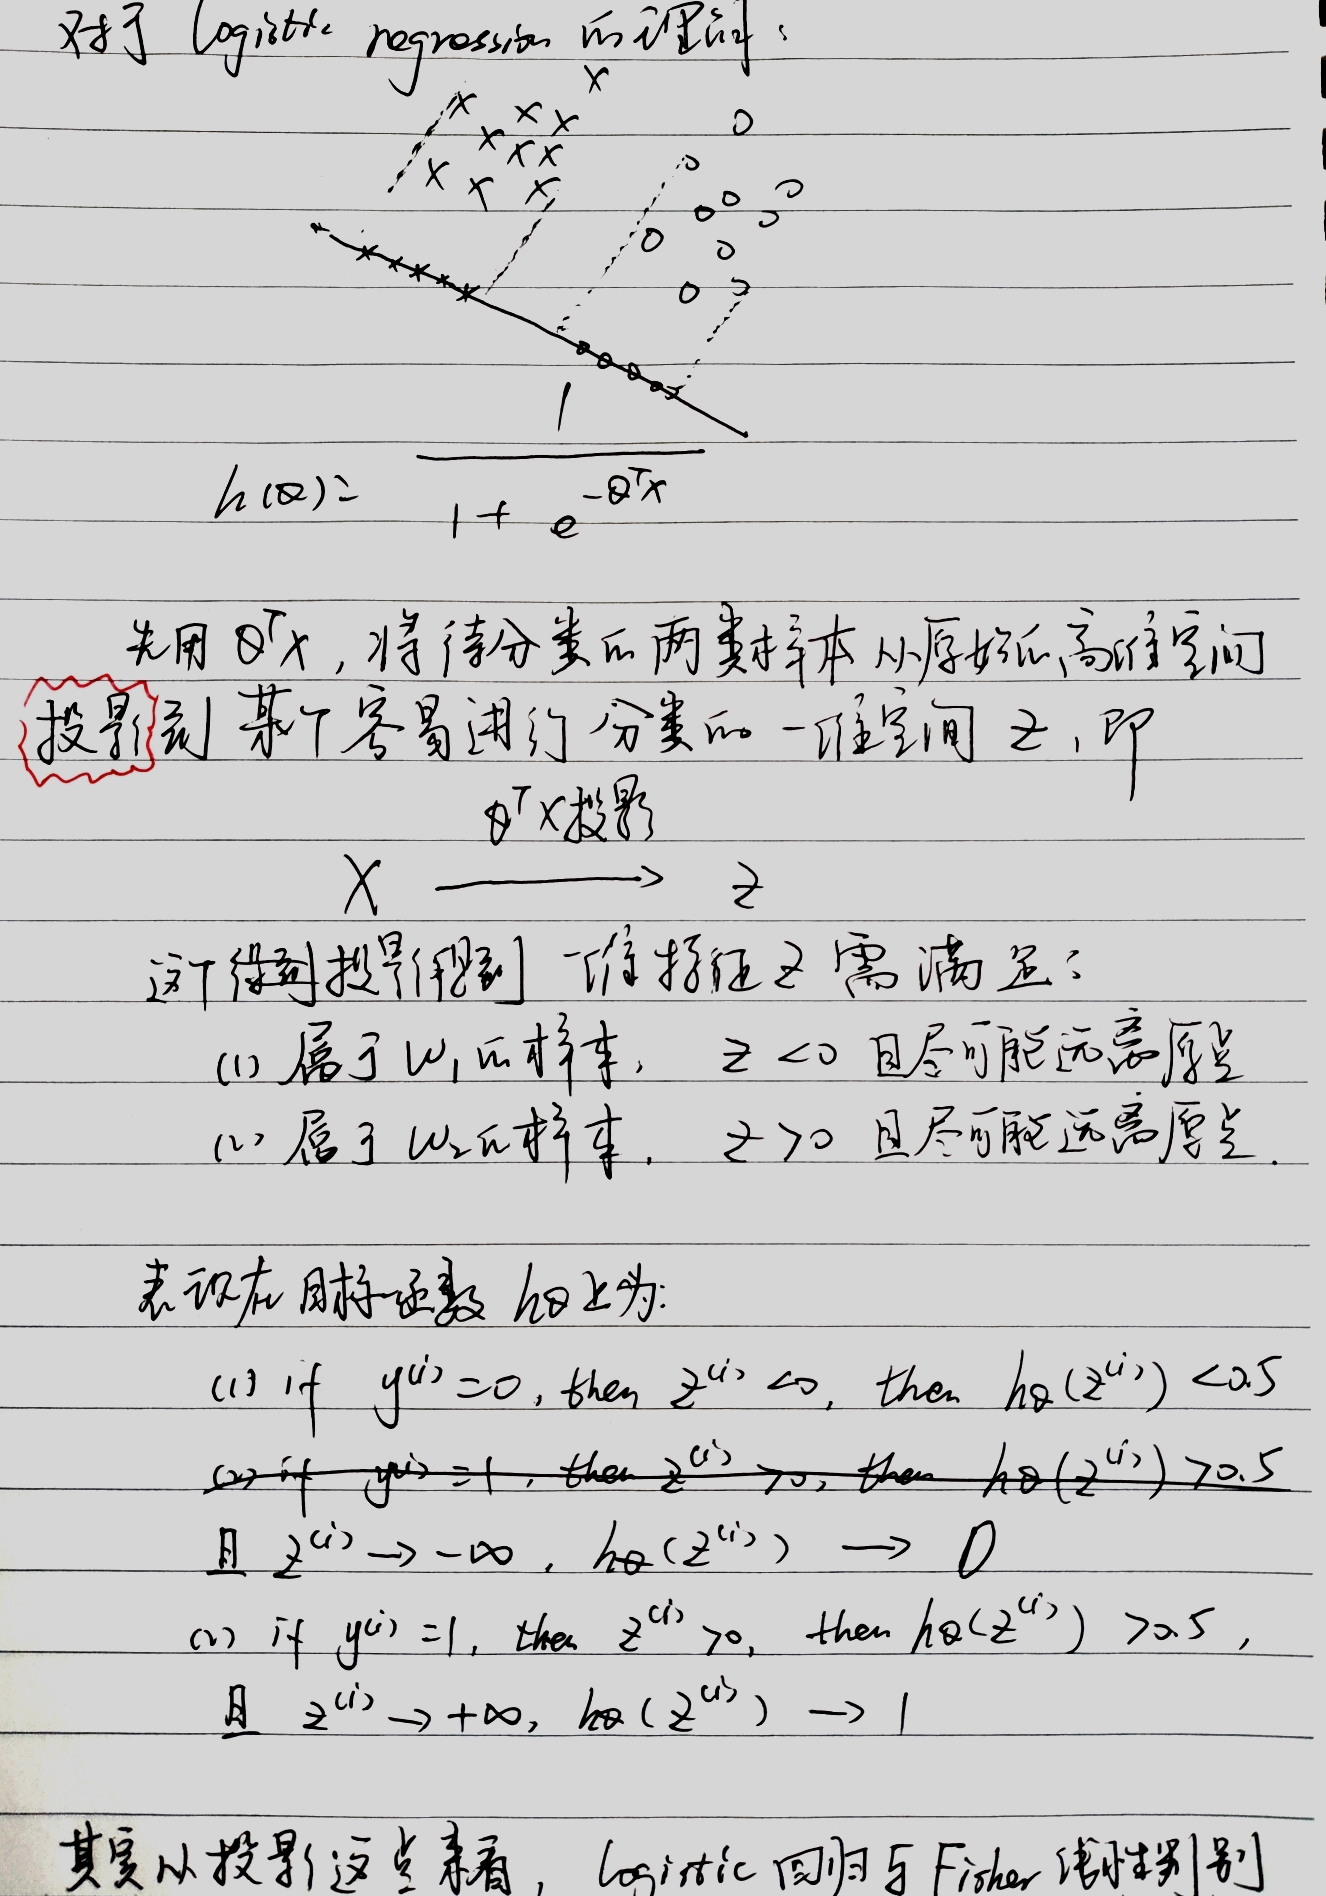 对于 Logistic regression 的理解:
h(θ)= 1 / (1 + e^{-θ^T x})
先用 θ^T x, 将待分类的两类样本从原始的高维空间
投影到某个容易进行分类的一维空间 z, 即
θ^T x投影
X ⟶ z
这个得到投影得到一维特征 z 需满足:
(1) 属于 w₁的样本, z<0 且尽可能远离原点
(2) 属于 w₂的样本, z>0 且尽可能远离原点.
表现在目标函数 hθ上为:
(1) if y^{(i)}=0, then z^{(i)}<0, then hθ(z^{(i)})<0.5
(2) if y^{(i)}=1, then z^{(i)}>0, then hθ(z^{(i)})>0.5
且 z^{(i)}→-∞, hθ(z^{(i)}) → 0
(2) if y^{(i)}=1, then z^{(i)}>0, then hθ(z^{(i)})>0.5,
且 z^{(i)}→+∞, hθ(z^{(i)}) → 1
其实从投影这点来看, Logistic 回归与 Fisher 线性判别